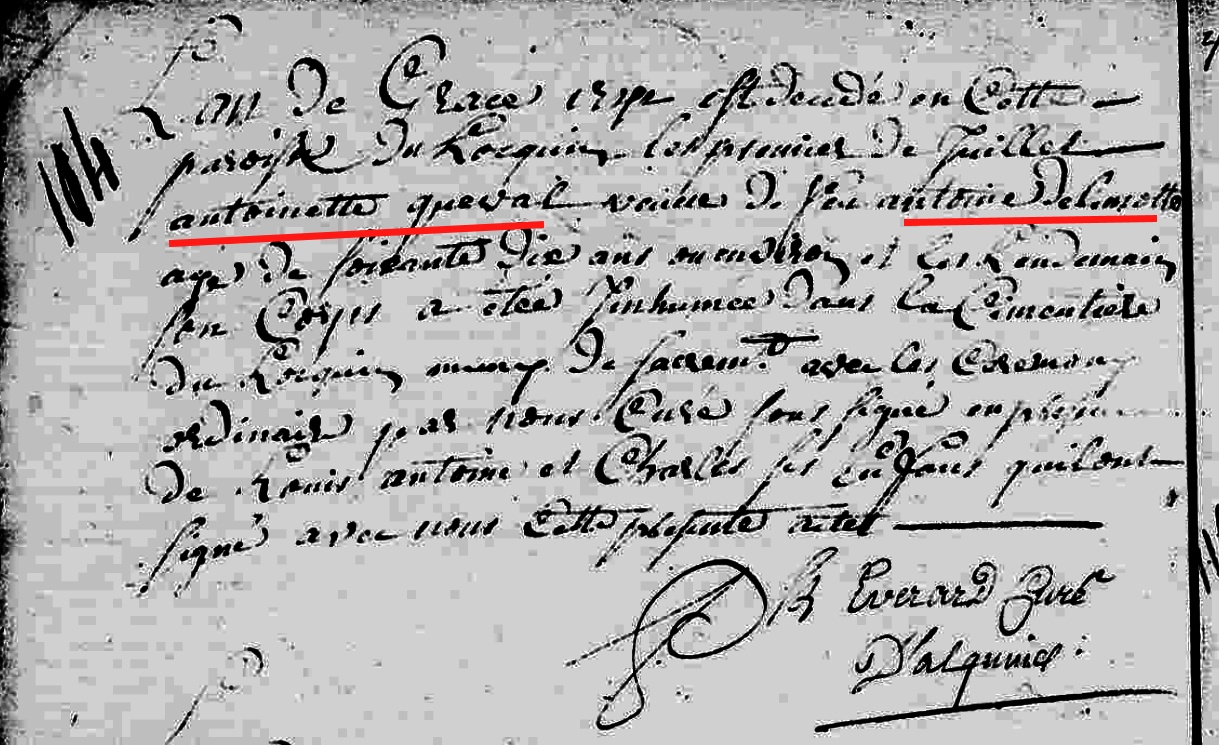 L'an de Grace est decedé en Cette
paroisse du Locquin les premier de Juillet
antoinette queval veuve de feu antoine delamotte
agé de soixante dix ans ou environ et les Lendemain
son Corps a étée Jnhumée dans la Cimentiere
du Locquin de sacremt avec les Ceremony
ordinaire par nous Curé sous signé en
de Louis antoine et Charles ses enfans quilont
signé avec nous Cette presente actet
Everard Curé
D'alquine